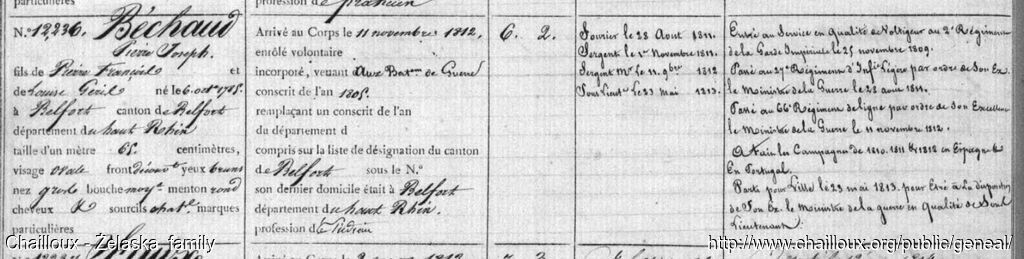 particulières
profession de praticien
N.° 12,236. Béchaud
Pierre Joseph.
fils de Pierre François et
de Louise Géril né le 6 oct.bre 1785.
à Belfort canton de Belfort
département du haut Rhin
taille d'un mètre 65. centimètres,
visage ovale front découv.t yeux bruns
nez gros bouche moy.e menton rond
cheveux & sourcils chat.s marques
particulières
Arrivé au Corps le 11 novembre 1812.
enrôlé volontaire
incorporé, venant Aux Bat.ons de Guerre
conscrit de l'an 1805.
remplaçant un conscrit de l'an
du département d
compris sur la liste de désignation du canton
de Belfort sous le N.°
son dernier domicile était à Belfort
département du haut Rhin.
profession d
6. 2.
Fourrier le 28 Aout 1811.
Sergent le 1.er Novembre 1811.
Sergent M.or le 11. 9bre 1812
Sous Lieut.t le 23 mai 1813.
Entré au Service en qualité de Voltigeur au 2.e Régiment
de la Garde Impériale le 25 novembre 1809.
Passé au 27.e Régiment d'Inf.ie Légère par ordre de Son Ex.
le Ministre de la Guerre le 28 aout 1811.
Passé au 66.e Régiment de ligne par ordre de Son Excellence
le Ministre de la Guerre le 11 novembre 1812.
A fait les Campagnes de 1810. 1811 & 1812 en Espagne &
En Portugal.
Parti pour Lille le 23 mai 1813. pour Etre à La disposition
de Son Ex. le Ministre de la guerre en Qualité de Sous
Lieutenant.
Chailloux - Zelaska family
http://www.chailloux.org/public/geneal/